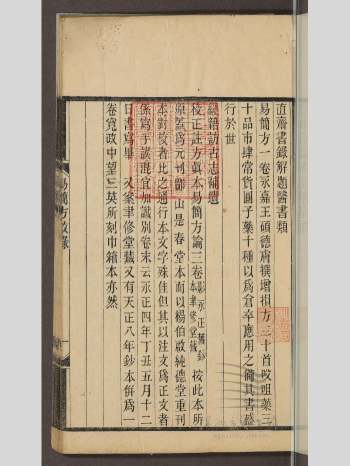 直齋書錄解題醫書類
易簡方一卷永嘉王碩德膚撰增損方三十首㕮咀藥三
十品市肆常貨圓子藥十種以爲倉卒應用之備其書盛
行於世
經籍訪古志補遺
校正注方眞本易簡方論三卷影永正舊鈔本聿修堂藏 按此本所
原蓋爲元刊 山是春堂本而以楊伯啟純德堂重刊
本對挍者比之通行本文字殊佳但其以注文爲正文者
係寫手誤混宜加識別卷末云永正四年丁丑五月十二
日書寫畢 又案聿修堂藏又有天正八年鈔本倂爲一
卷寬政中望三英所刻巾箱本亦然
易簡方